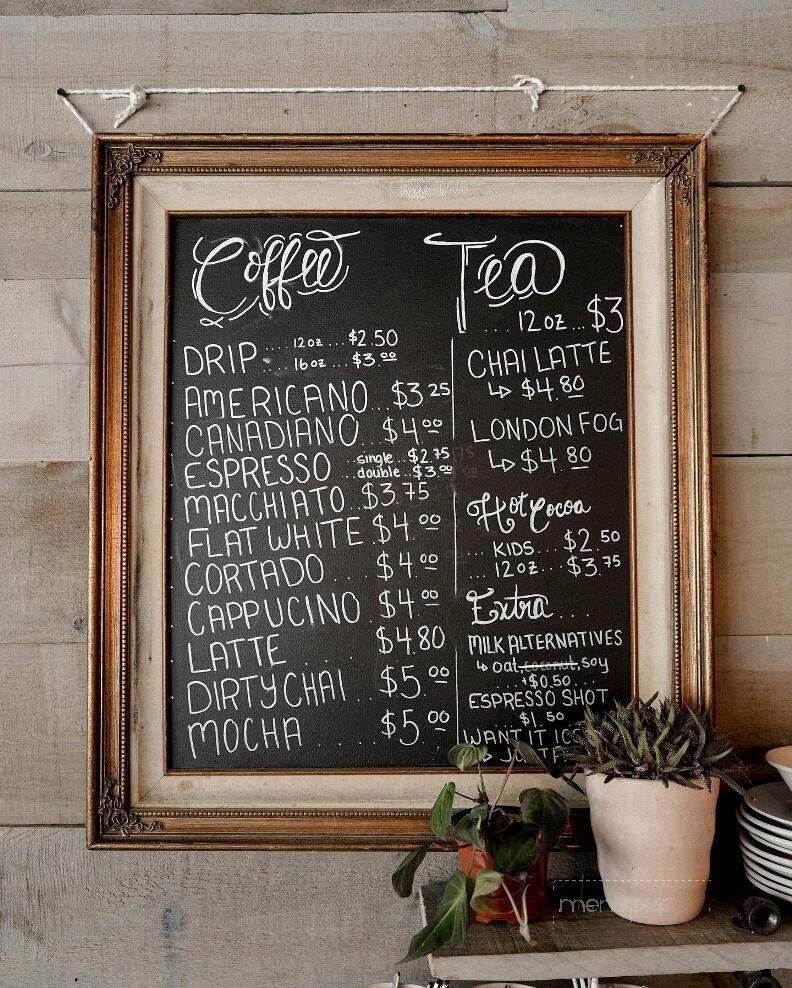 Coffee
DRIP... 12oz ... $2.50
16oz ... $3.00
AMERICANO... $3.25
CANADIANO... $4.00
ESPRESSO ...single ..$2.75
...double ..$3.00
MACCHIATO..$3.75
FLAT WHITE.$4.00
CORTADO.... $4.00
CAPPUCINO.. $4.00
LATTE...... $4.80
DIRTY CHAI.. $5.00
MOCHA..... $5.00
Tea
... 12oz...$3
CHAI LATTE
↳ $4.80
LONDON FOG
↳ $4.80
Hot Cocoa
... KIDS... $2.50
... 12oz... $3.75
Extra....
MILK ALTERNATIVES
↳ oat, coconut, soy
+$0.50
ESPRESSO SHOT
$1.50
WANT IT